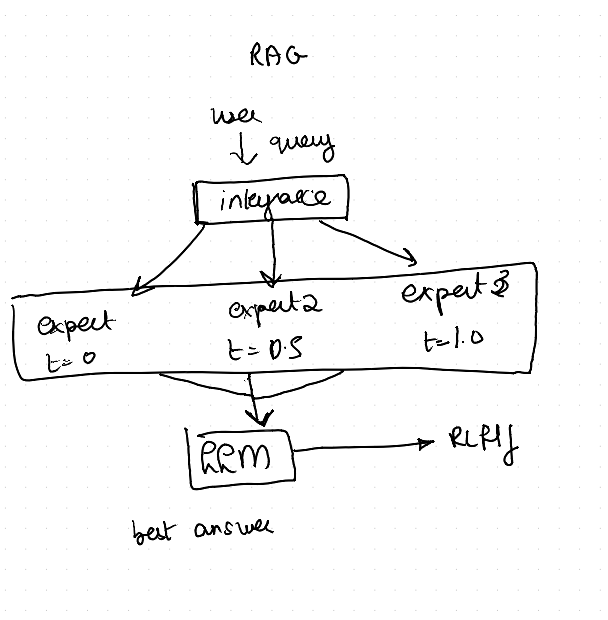 RAG
user
query
interface
expert expert 2 expert 3
t= 0 t= 0.5 t=1.0
LLM
RLHF
best answer